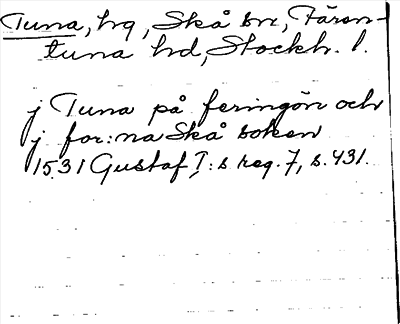 Tuna, hg, Skå sn, Fären-
tuna hd, Stockh. l.
j Tuna på feringön och
j for:na Skå soken
1531 Gustaf I:s reg. 7, s. 431.